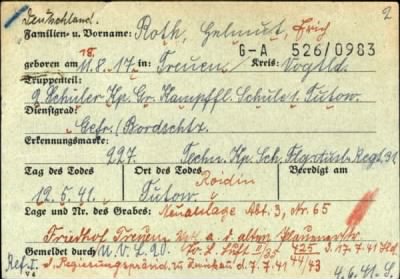 Deutschland.
Familien- u. Vorname: Roth, Helmut, Erich 2
G-A 526/0983
geboren am 11.8.17 in: Treuen Kreis: Vogtld.
18.
Truppenteil:
2. Schüler Kp. Gr. Kampffl. Schule 1, Tutow.
Dienstgrad:
Gefr./Bordschtz.
Erkennungsmarke:
227. Techn. Kp. Sch. Flg. Ausb. Regt. 31
Tag des Todes Ort des Todes Beerdigt am
Roidin
12.5.41. Tutow.
Lage und Nr. des Grabes: Neuanlage Abt. 3, Nr. 65
Friedhof Treuen a. d. alten
Gemeldet durch: N.V.L. 20. 425 d. 17.7.41
Ref. d. Regierungspräsid. zu Zwickau d. 7.7.41 44/43
4.6.41-S.